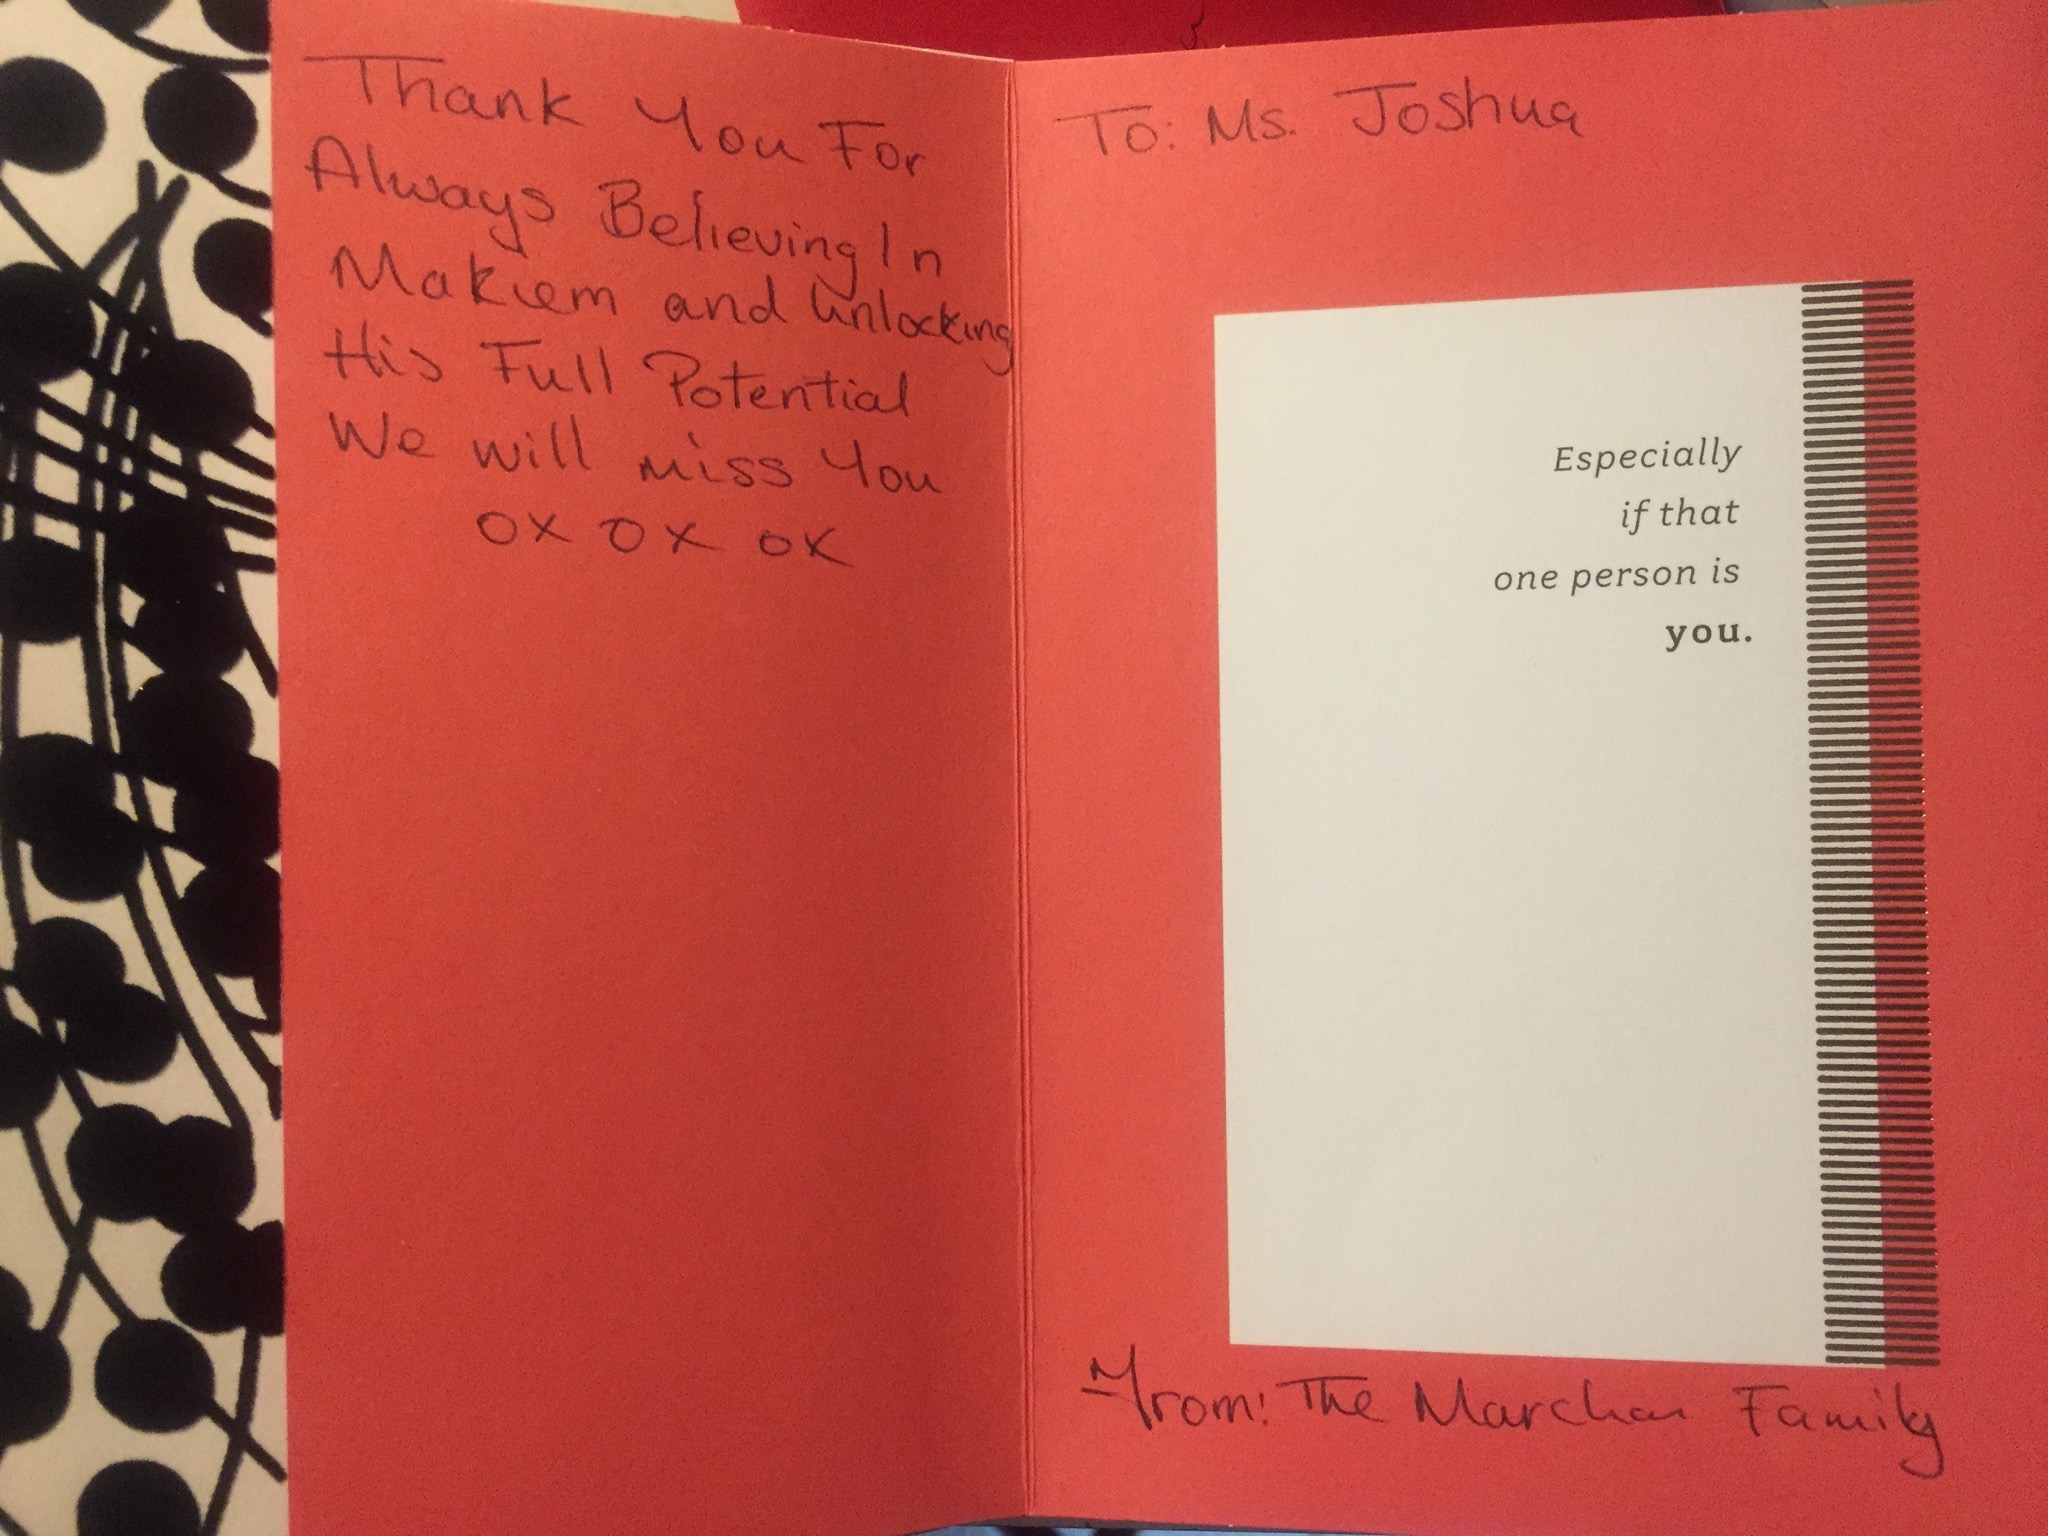 Thank You For
Always Believing In
Makiem and Unlocking
His Full Potential
We will miss You
OX OX OX
To: Ms. Joshua
Especially
if that
one person is
you.
From: The Marchan Family